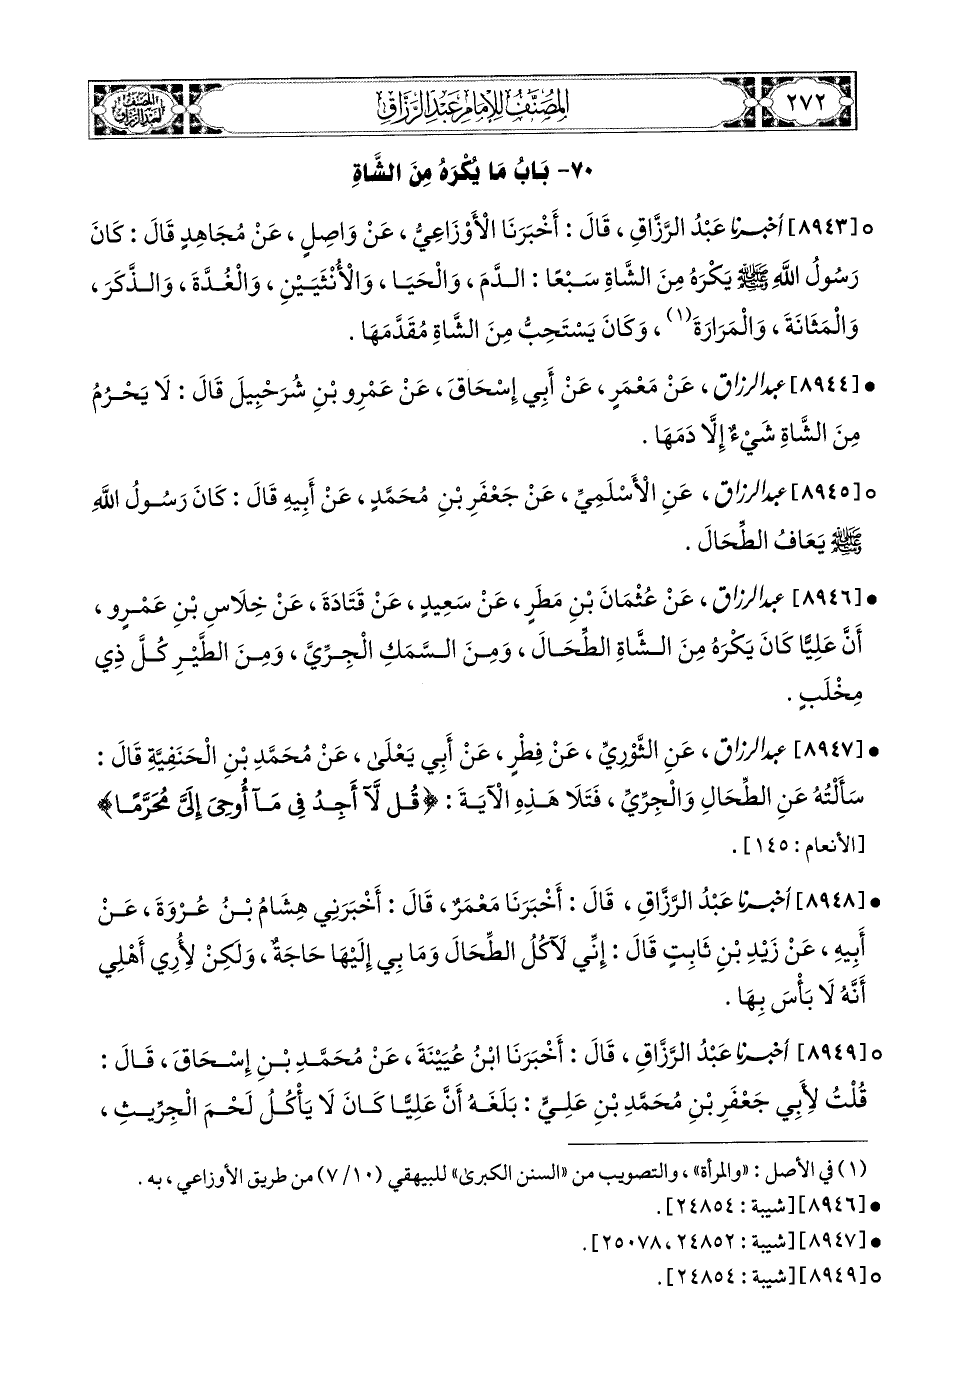 ٢٧٢
المصنف للإمام عبد الرزاق
المصنف
لعبد الرزاق
٧٠- بَابُ مَا يُكْرَهُ مِنَ الشَّاةِ
○ [٨٩٤٣] أَخْبَرَنَا عَبْدُ الرَّزَّاقِ ، قَالَ : أَخْبَرَنَا الْأَوْزَاعِيُّ ، عَنْ وَاصِلٍ ، عَنْ مُجَاهِدٍ قَالَ : كَانَ
رَسُولُ اللَّهِ ﷺ يَكْرَهُ مِنَ الشَّاةِ سَبْعًا : الدَّمَ ، وَالْحَيَا ، وَالْأُنْثَيَيْنِ ، وَالْغُدَّةَ ، وَالذَّكَرَ ،
وَالْمَثَانَةَ ، وَالْمَرَارَةَ (١) ، وَكَانَ يَسْتَحِبُّ مِنَ الشَّاةِ مُقَدَّمَهَا .
● [٨٩٤٤] عبد الرزاق ، عَنْ مَعْمَرٍ ، عَنْ أَبِي إِسْحَاقَ ، عَنْ عَمْرِو بْنِ شُرَحْبِيلَ قَالَ : لَا يَحْرُمُ
مِنَ الشَّاةِ شَيْءٌ إِلَّا دَمَهَا .
○ [٨٩٤٥] عبد الرزاق ، عَنِ الْأَسْلَمِيِّ ، عَنْ جَعْفَرِ بْنِ مُحَمَّدٍ ، عَنْ أَبِيهِ قَالَ : كَانَ رَسُولُ اللَّهِ
ﷺ يَعَافُ الطِّحَالَ .
● [٨٩٤٦] عبد الرزاق ، عَنْ عُثْمَانَ بْنِ مَطَرٍ ، عَنْ سَعِيدٍ ، عَنْ قَتَادَةَ ، عَنْ خِلَاسِ بْنِ عَمْرٍو ،
أَنَّ عَلِيًّا كَانَ يَكْرَهُ مِنَ الشَّاةِ الطِّحَالَ ، وَمِنَ السَّمَكِ الْجِرِّيَّ ، وَمِنَ الطَّيْرِ كُلَّ ذِي
مِخْلَبٍ .
● [٨٩٤٧] عبد الرزاق ، عَنِ الثَّوْرِيِّ ، عَنْ فِطْرٍ ، عَنْ أَبِي يَعْلَى ، عَنْ مُحَمَّدِ بْنِ الْحَنَفِيَّةِ قَالَ :
سَأَلْتُهُ عَنِ الطِّحَالِ وَالْجِرِّيِّ ، فَتَلَا هَذِهِ الْآيَةَ : ﴿قُل لَّآ أَجِدُ فِى مَآ أُوحِىَ إِلَىَّ مُحَرَّمًا﴾
[الأنعام : ١٤٥] .
● [٨٩٤٨] أَخْبَرَنَا عَبْدُ الرَّزَّاقِ ، قَالَ : أَخْبَرَنَا مَعْمَرٌ ، قَالَ : أَخْبَرَنِي هِشَامُ بْنُ عُرْوَةَ ، عَنْ
أَبِيهِ ، عَنْ زَيْدِ بْنِ ثَابِتٍ قَالَ : إِنِّي لَآكُلُ الطِّحَالَ وَمَا بِي إِلَيْهَا حَاجَةٌ ، وَلَكِنْ لِأُرِي أَهْلِي
أَنَّهُ لَا بَأْسَ بِهَا .
○ [٨٩٤٩] أَخْبَرَنَا عَبْدُ الرَّزَّاقِ ، قَالَ : أَخْبَرَنَا ابْنُ عُيَيْنَةَ ، عَنْ مُحَمَّدِ بْنِ إِسْحَاقَ ، قَالَ :
قُلْتُ لِأَبِي جَعْفَرِ بْنِ مُحَمَّدِ بْنِ عَلِيٍّ : بَلَغَهُ أَنَّ عَلِيًّا كَانَ لَا يَأْكُلُ لَحْمَ الْجِرِّيثِ ،
(١) في الأصل : «والمرأة» ، والتصويب من «السنن الكبرى» للبيهقي (١٠/ ٧) من طريق الأوزاعي ، به .
● [٨٩٤٦] [شيبة : ٢٤٨٥٤] .
● [٨٩٤٧] [شيبة : ٢٤٨٥٢ ، ٢٥٠٧٨] .
○ [٨٩٤٩] [شيبة : ٢٤٨٥٤] .